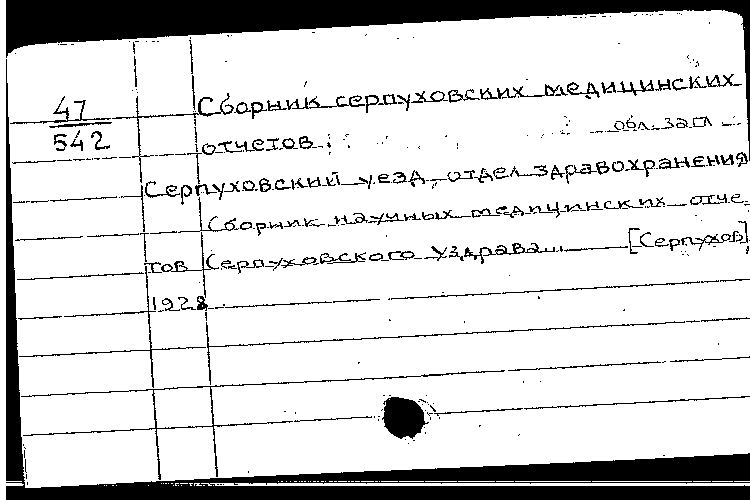 47 Сборник серпуховских медицинских
542 отчетов. обл. загл.
Серпуховский уезд. отдел здравохранения
Сборник научных медицинских отче-
тов Серпуховского Уздрава... [Серпухов]
1928